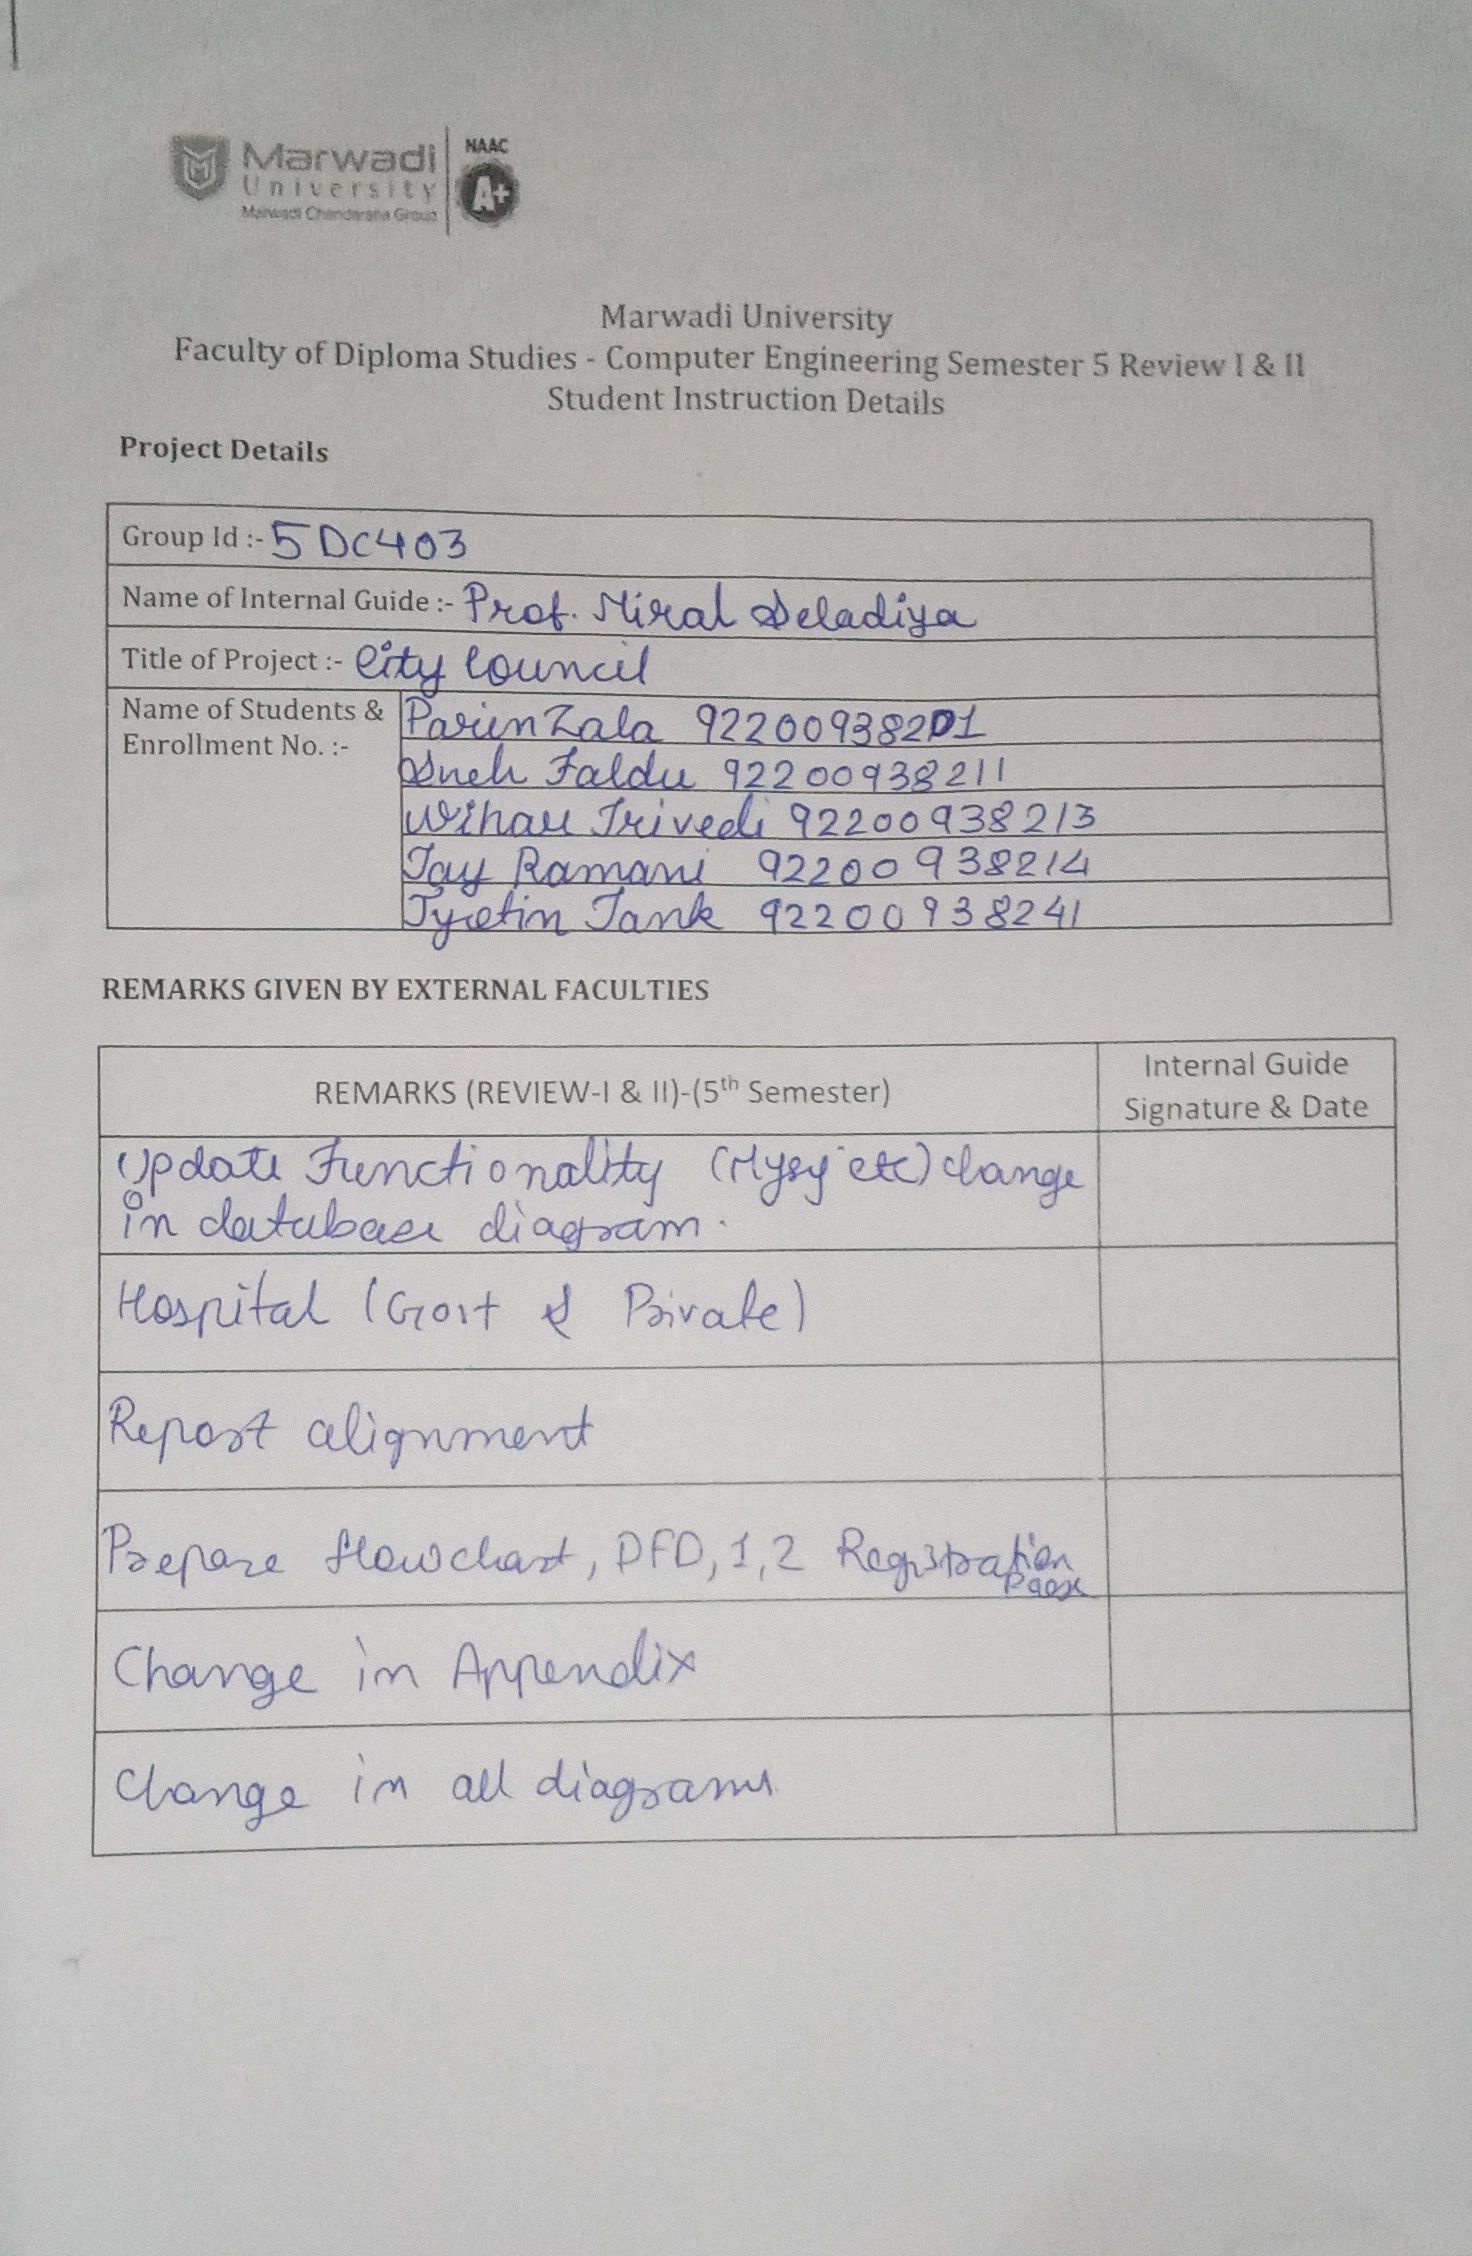 Marwadi
University
Marwadi Chandarana Group
NAAC
A+
Marwadi University
Faculty of Diploma Studies - Computer Engineering Semester 5 Review I & II
Student Instruction Details
Project Details
Group Id :- 5DC403
Name of Internal Guide :- Prof. Miral Seladiya
Title of Project :- City Council
Name of Students &
Enrollment No. :-
Parin Zala 92200938201
Sneh Faldu 92200938211
Trivedi 92200938213
Jay Ramani 92200938214
Tank 92200938241
REMARKS GIVEN BY EXTERNAL FACULTIES
REMARKS (REVIEW-I & II)-(5th Semester)
Internal Guide
Signature & Date
Update Functionality etc) change
in database diagram.
Hospital (Govt & Private)
Report alignment
Prepare flowchart, DFD,1,2 Registration
Change in Appendix
Change in all diagrams